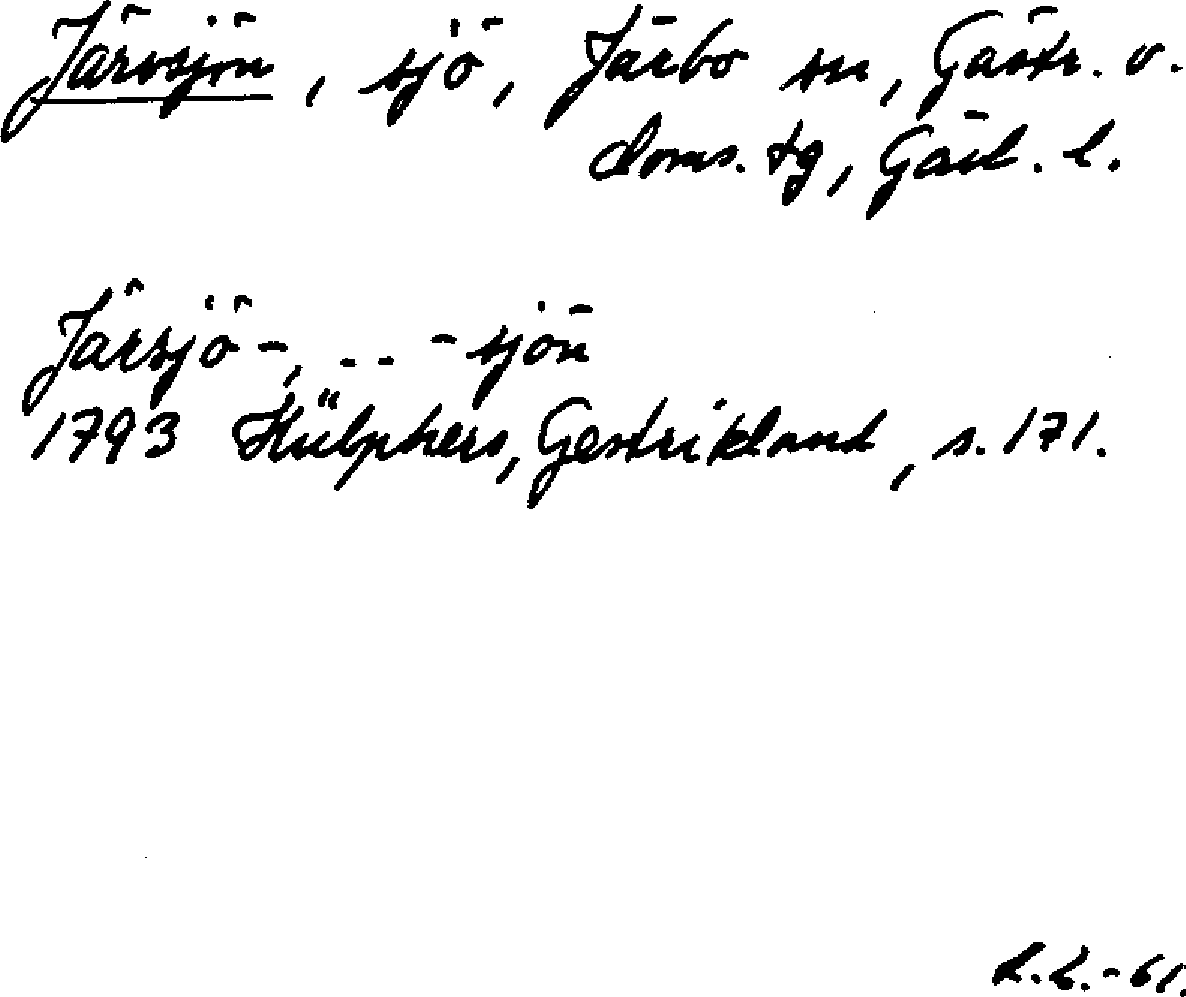 Järvsjön, sjö, Järbo sn, Gästr. v.
doms. tg, Gävl. l.
Järsjö-, .. -sjön
1793 Hülphers, Gestrikland, s. 171.
L.L.-61.